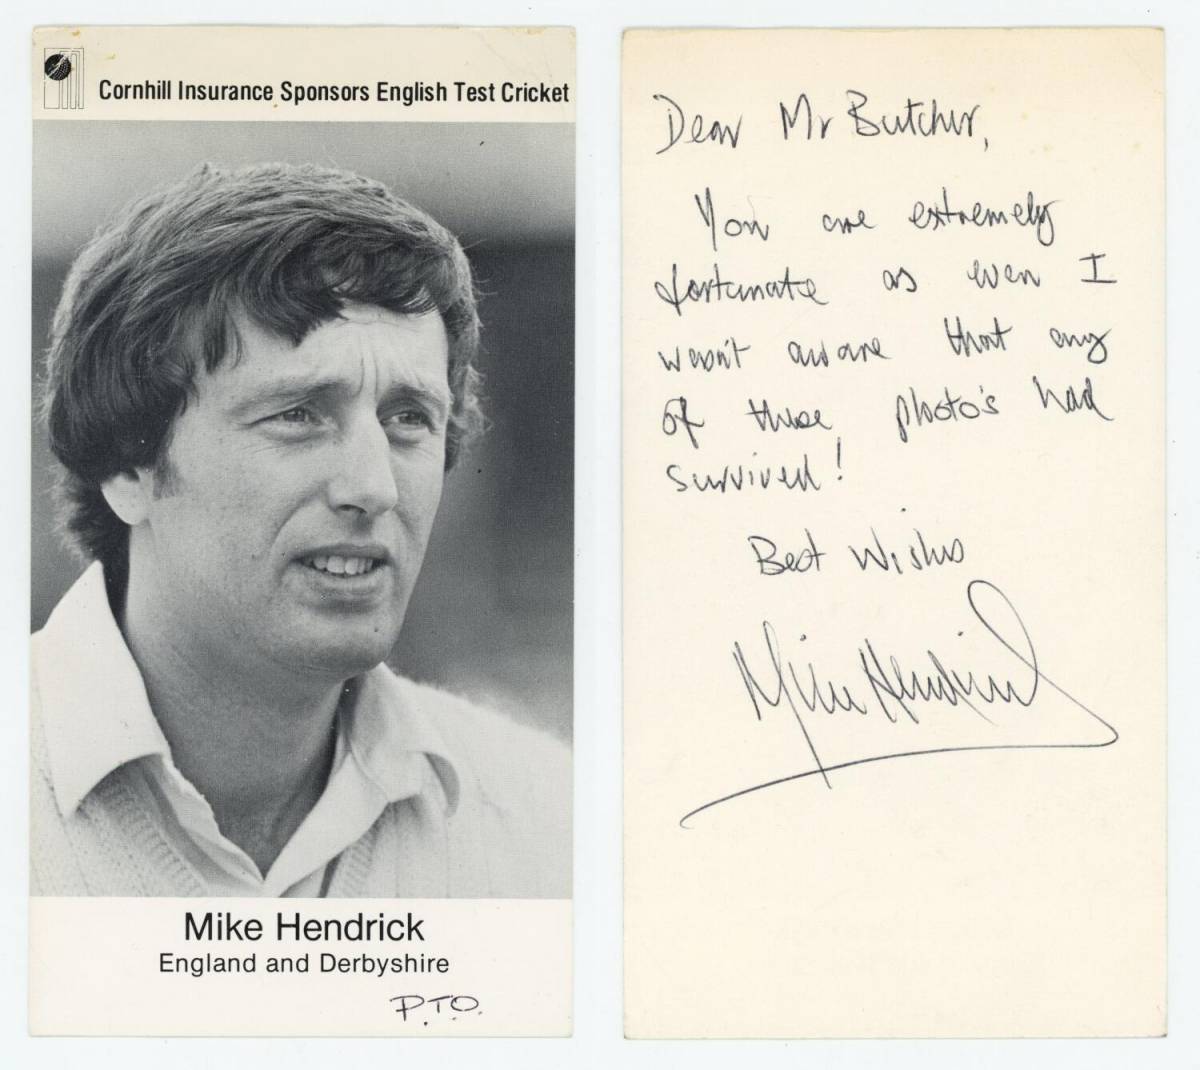 Cornhill Insurance Sponsors English Test Cricket
Mike Hendrick
England and Derbyshire
P.T.O.
Dear Mr Butcher,
You are extremely
fortunate as even I
wasn't aware that any
of these, photo's had
survived!
Best Wishes
Mike Hendrick